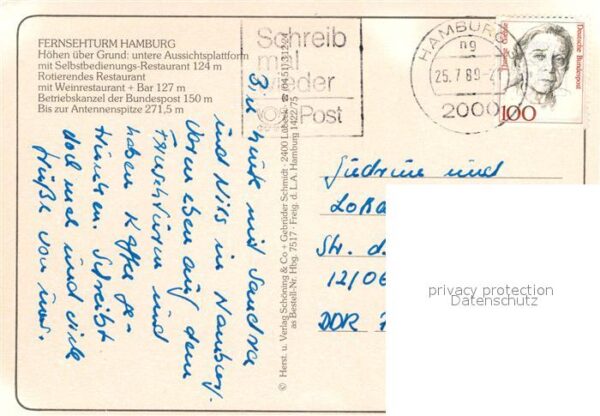 FERNSEHTURM HAMBURG
Höhen über Grund: untere Aussichtsplattform
mit Selbstbedienungs-Restaurant 124 m
Rotierendes Restaurant
mit Weinrestaurant + Bar 127 m
Betriebskanzel der Bundespost 150 m
Bis zur Antennenspitze 271,5 m
Schreib
mal
wieder
Post
HAMBURG
ng
25.7.89-2
2000
Deutsche Bundespost
100
© Herst. u. Verlag Schöning & Co + Gebrüder Schmidt · 2400 Lübeck ☎ (0451) 31203
as Bestell-Nr. Hbg. 7517 · Freig. d. L.A. Hamburg 1422/75
sind mit Sandra
und Nils in Hamburg.
Waren eben auf dem
Fernsehturm und
haben Kaffee ge-
trunken. Schreibt
doch mal und viele
Grüße von uns.
und
Str. d.
12/06
DDR
privacy protection
Datenschutz